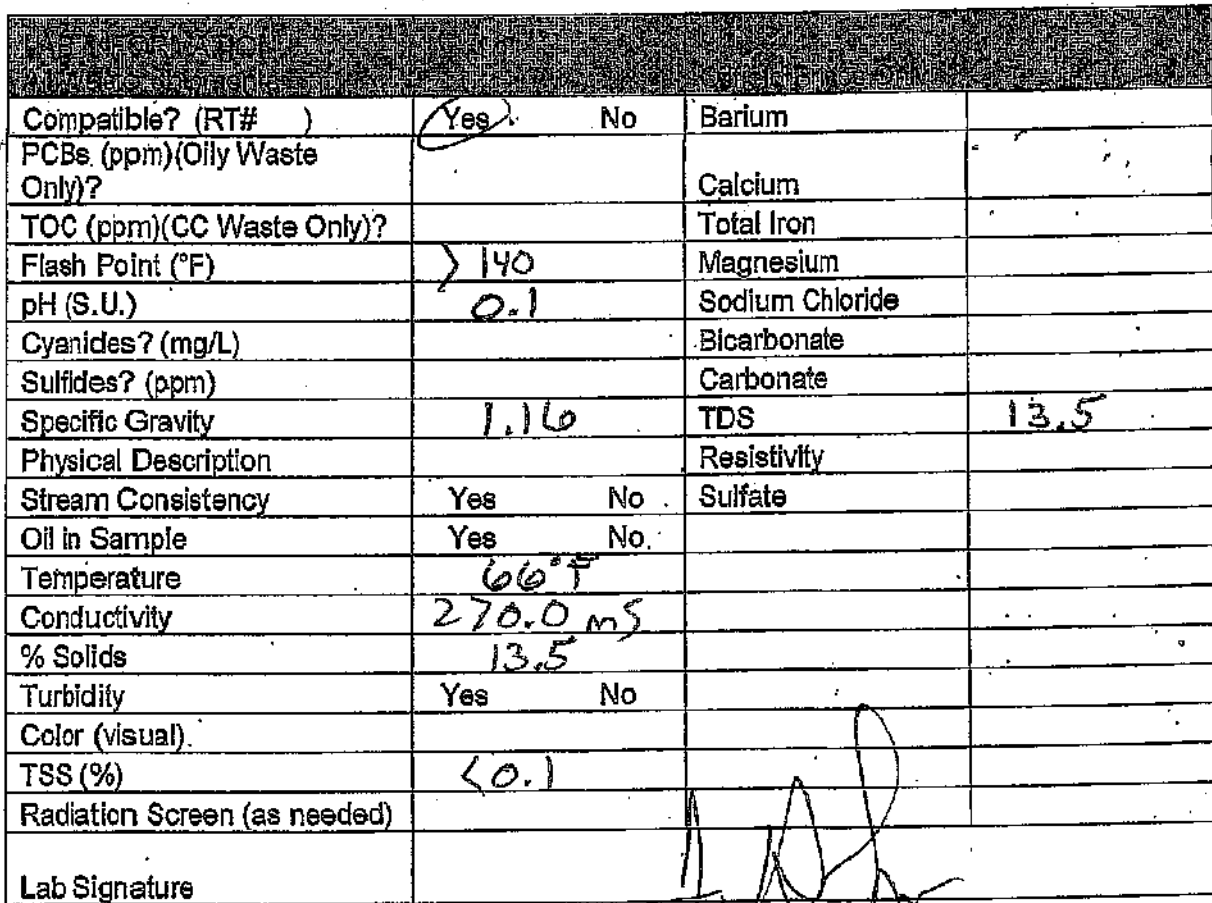 LAB INFORMATION
Compatible? (RT# ) Yes No Barium
PCBs (ppm)(Oily Waste
Only)? Calcium
TOC (ppm)(CC Waste Only)? Total Iron
Flash Point (°F) > 140 Magnesium
pH (S.U.) 0.1 Sodium Chloride
Cyanides? (mg/L) Bicarbonate
Sulfides? (ppm) Carbonate
Specific Gravity 1.16 TDS 13.5
Physical Description Resistivity
Stream Consistency Yes No Sulfate
Oil in Sample Yes No
Temperature 66°F
Conductivity 270.0 mS
% Solids 13.5
Turbidity Yes No
Color (visual)
TSS (%) <0.1
Radiation Screen (as needed)
Lab Signature